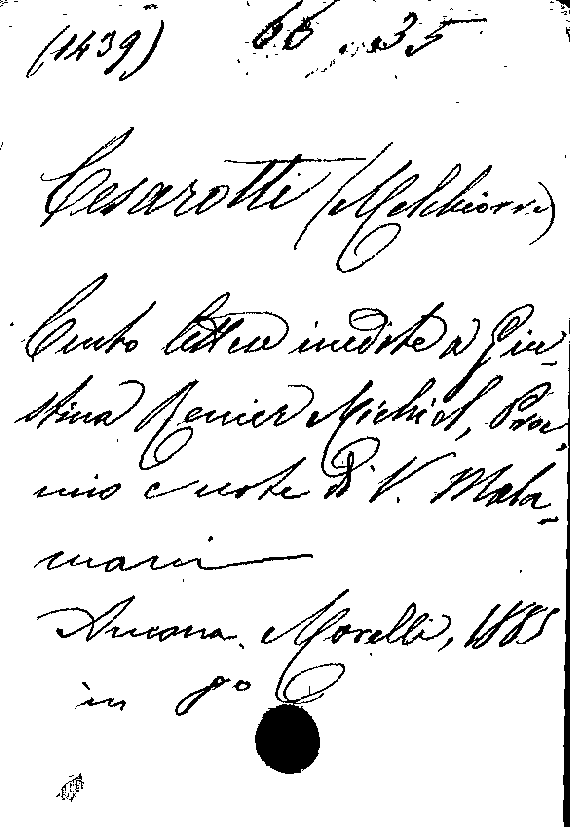 (1439) 66 . 35
Cesarotti (Melchiorre)
Cento lettere inedite a Giu-
stina Renier Michiel, Proe-
mio e note di V. Mala-
mani
Ancona. Morelli, 1885
in 8º